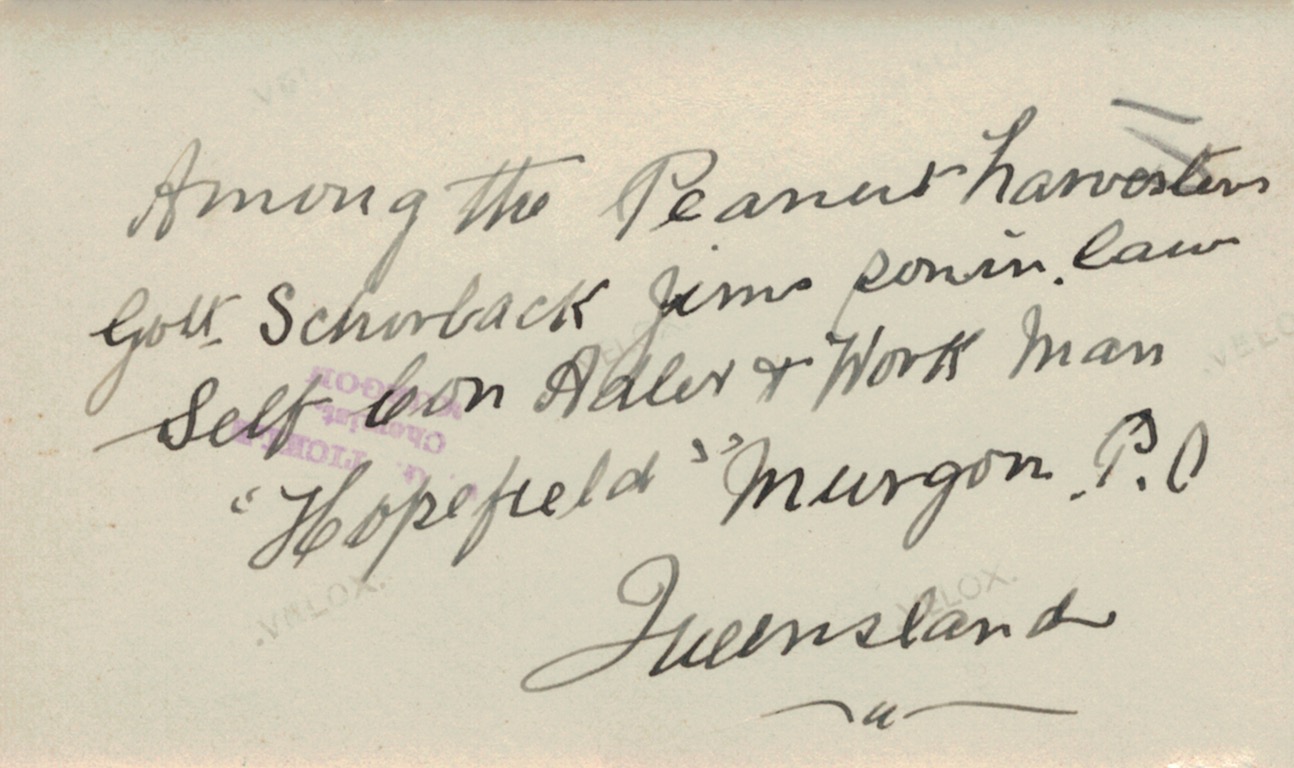 Among the Peanut harvesters
Gott. Schorback Jims son in. law
Self Con Adler & Work Man
"Hopefield" Murgon. P.O
Queensland
VELOX.
VELOX.
VELOX
Chemist,
MURGON